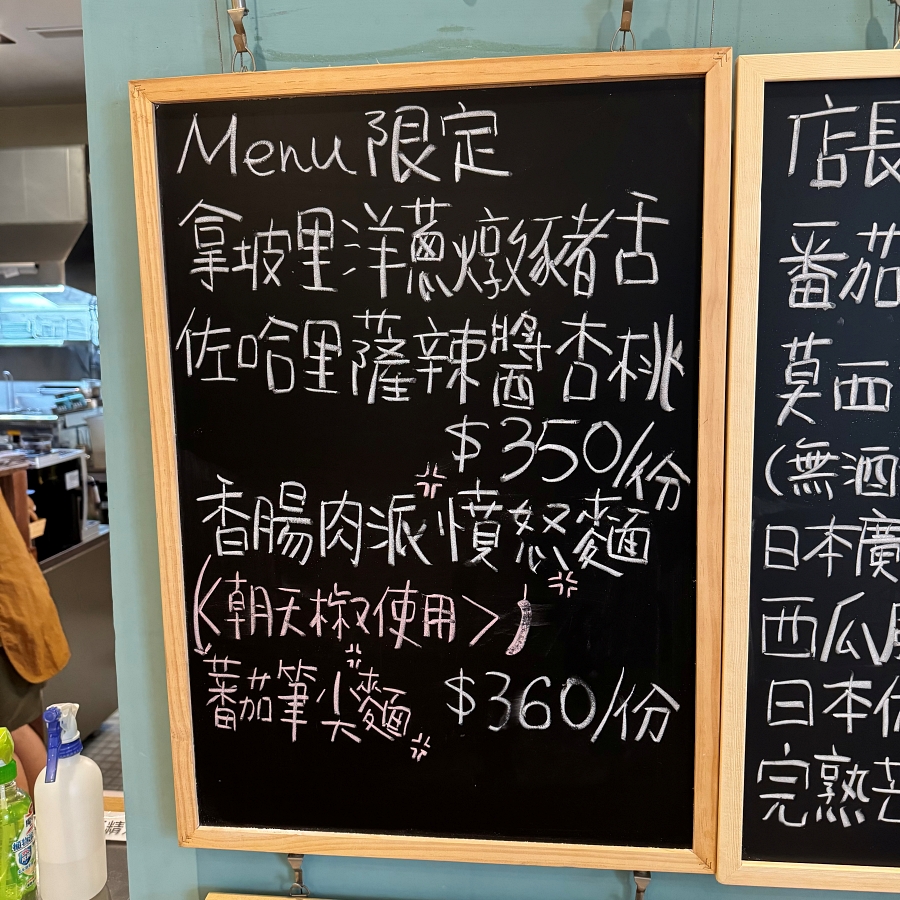 Menu限定
拿坡里洋蔥燉豬舌
佐哈里薩辣醬杏桃
$350/份
香腸肉派憤怒麵
<朝天椒使用>
蕃茄筆尖麵 $360/份
店長
番茄
莫西
(無酒
日本廣
西瓜
日本
完熟芒